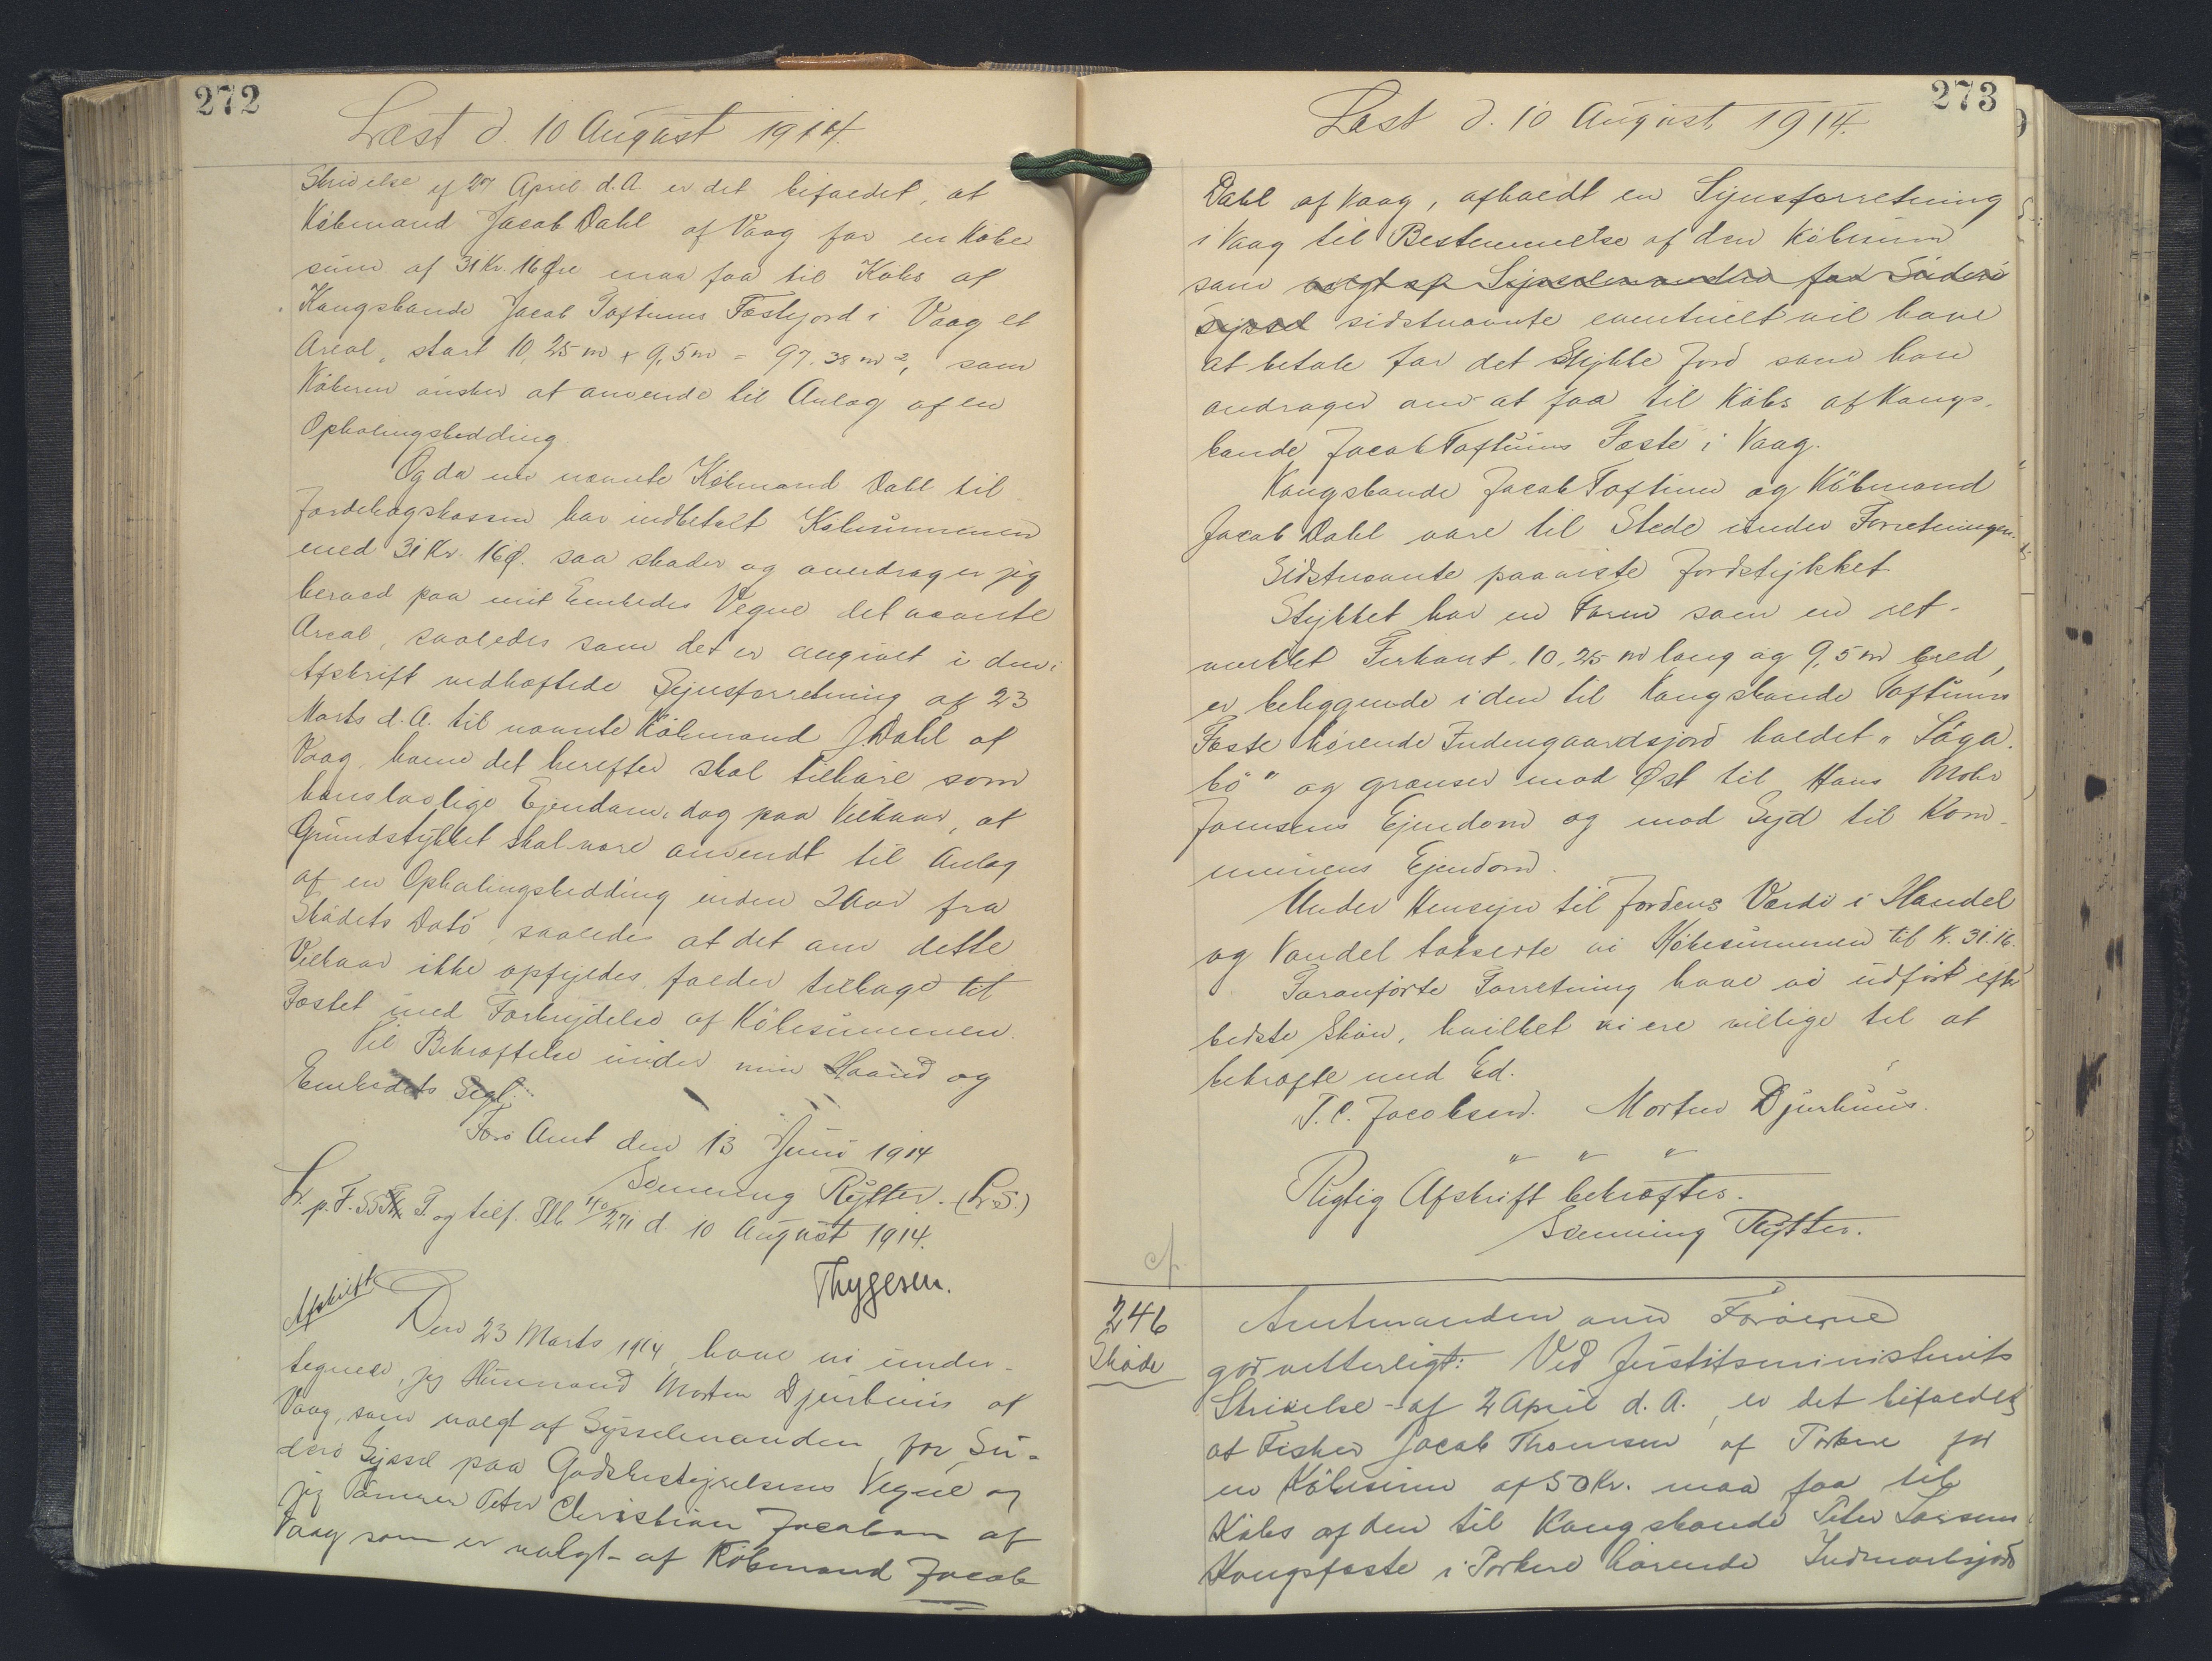 272
Læst d. 10 August 1914.
Skrivelse af 27 April d.A. er det bifaldet, at
Købmand Jacob Dahl af Vaag for en Købe
sum af 31 Kr. 16 Øre maa faa til Købs af
Kongsbonde Jacob Toftums Fæstejord i Vaag et
Areal, stort 10,25 m x 9,5 m = 97.38 m², som
Køberen ønsker at anvende til Anlæg af en
Ophalingsbedding.
Og da nu nævnte Købmand Dahl til
Jordebogskassen har indbetalt Købesummen
med 31 Kr. 16 Ø. saa skøder og overdrager jeg
herved paa mit Embedes Vegne det nævnte
Areal, saaledes som det er angivet i den i
Afskrift vedhæftede Synsforretning af 23
Marts d.A. til nævnte Købmand J. Dahl af
Vaag, hvem det herefter skal tilhøre som
hans lovlige Ejendom, dog paa Vilkaar, at
Grundstykket skal være anvendt til Anlæg
af en Ophalingsbedding inden 2 Aar fra
Skødets Dato, saaledes at det om dette
Vilkaar ikke opfyldes falder tilbage til
Fæstet med Forbrydelse af Købesummen.
Til Bekræftelse under min Haand og
Embedets Segl.
Færø Amt den 13 Juni 1914
Svenning Rytter. (L.S.)
L. p. F. S.S. T. og tilf. Plb 4/271 d. 10 August 1914.
Thygesen.
Afskrift
Den 23 Marts 1914, have vi under-
tegnede, jeg Husmand Morten Djurhuus af
Vaag, som valgt af Sysselmanden for Su-
derø Syssel paa Godsbestyrelsens Vegne og
jeg Tømrer Peter Christian Jacobsen af
Vaag som er valgt af Købmand Jacob
273
Læst d. 10 August 1914.
Dahl af Vaag, afholdt en Synsforretning
i Vaag til Bestemmelse af den Købesum
som valgt af Sysselmanden for Suderø
Syssel sidstnævnte eventuelt vil have
at betale for det Stykke Jord som han
andrager om at faa til Købs af Kongs-
bonde Jacob Toftums Fæste i Vaag.
Kongsbonde Jacob Toftum og Købmand
Jacob Dahl vare til Stede under Forretningen.
Sidstnævnte paaviste Jordstykket.
Stykket har en Form som en ret-
vinklet Firkant, 10,25 m lang og 9,5 m bred,
er beliggende i den til Kongsbonde Toftums
Fæste hørende Indengaardsjord kaldet „Løga-
bø" og grænser mod Øst til Hans Mohr
Joensens Ejendom og mod Syd til Kom-
munens Ejendom.
Under Hensyn til Jordens Værdi i Handel
og Vandel takserte vi Købesummen til Kr. 31.16.
Foranførte Forretning have vi udført efter
bedste Skøn, hvilket vi ere villige til at
bekræfte med Ed.
P. C. Jacobsen. Morten Djurhuus.
" " "
Rigtig Afskrift bekræftes.
Svenning Rytter.
246
Skøde
Amtmanden over Færøerne
gør vitterligt: Ved Justitsministeriets
Skrivelse af 2 April d. A., er det bifaldet,
at Fisker Jacob Thomsen af Porkere for
en Købesum af 50 Kr. maa faa til
Købs af den til Kongsbonde Peter Larsens
Kongsfæste i Porkere hørende Indmarksjord